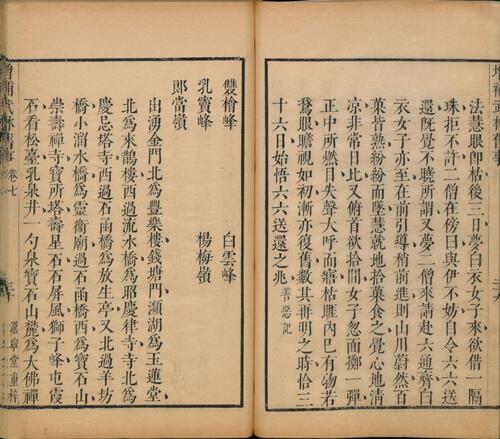 增補武林舊事
法慧眼卽枯後三日夢白衣女子來欲借一隔
珠拒不許二僧在傍曰與伊不妨自今六六送
還旣覺不曉所謂又夢二僧來請赴六通齋白
衣女子亦至在前引導稍前進則山川蔚然百
菓皆熟紛紛而墜慧就地拾菓食之覺心地淸
凉非常日比又俯首欲拾間女子忽面擲一彈
正中所燃目失聲大呼而瘖枯匪內已有物若
鵞眼瞻視如初漸亦復舊數其再明之時恰三
十六日始悟六六送還之兆善惡記
雙檜峰　　　　白雲峰
乳竇峰　　　　楊梅嶺
郎當嶺
出湧金門北爲豐樂樓錢塘門瀕湖爲玉蓮堂
北爲來鵲樓西過流水橋爲昭慶律寺寺北爲
慶忌塔寺西過石函橋爲放生亭又北過羊坊
橋小溜水橋爲靈衞廟過石函橋西爲寶石山
崇壽禪寺寶所塔壽星石石屏風獅子峰屯霞
石看松臺乳泉井一勺泉寶石山麓爲大佛禪
增補武林舊事　卷七
澹寧堂重梓